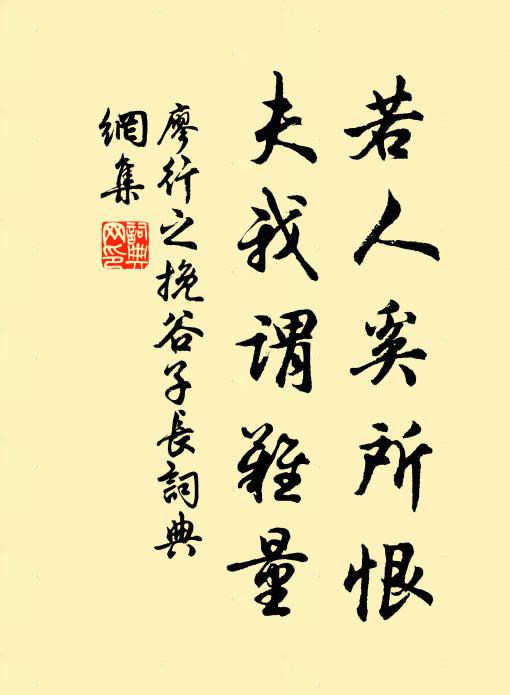 若人奚所恨
夫我謂難量
廖行之挽谷子長詞典
網集
詞典
网印